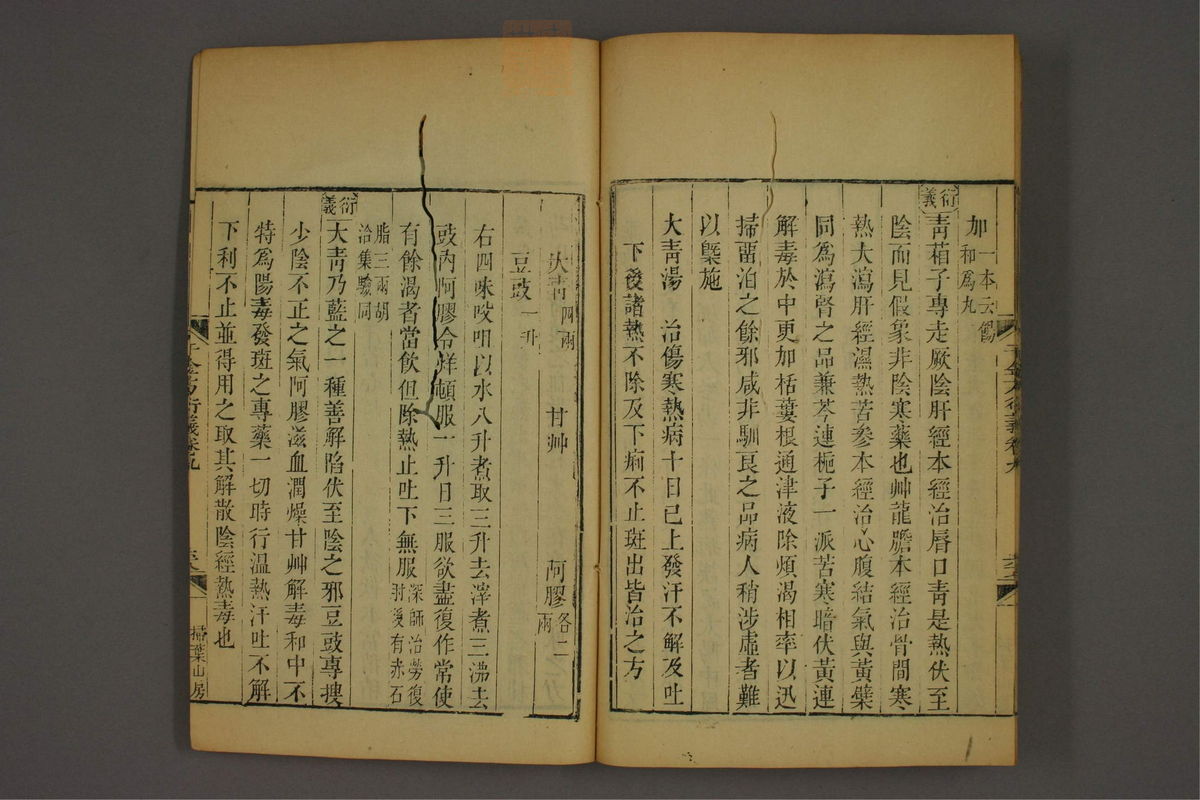 加一本云餳和爲丸
衍義青葙子專走厥陰肝經本經治脣口靑是熱伏至
陰而見假象非陰寒藥也艸龍膽本經治骨間寒
熱大瀉肝經濕熱苦參本經治心腹結氣與黃檗
同爲瀉腎之品兼芩連梔子一派苦寒暗伏黃連
解毒於中更加栝蔞根通津液除煩渴相率以迅
掃畱泊之餘邪咸非馴良之品病人稍涉虛者難
以槩施
大靑湯　治傷寒熱病十日已上發汗不解及吐
下後諸熱不除及下痢不止斑出皆治之方
大靑四兩　甘艸　阿膠各二兩
豆豉一升
右四味㕮咀以水八升煮取三升去滓煮三沸去
豉內阿膠令烊頓服一升日三服欲盡復作常使
有餘渴者當飲但除熱止吐下無服深師治勞復肘後有赤石
脂三兩胡洽集驗同
衍義大靑乃藍之一種善解陷伏至陰之邪豆豉專搜
少陰不正之氣阿膠滋血潤燥甘艸解毒和中不
特爲陽毒發斑之專藥一切時行溫熱汗吐不解
下利不止並得用之取其解散陰經熱毒也
千金方衍義卷九
掃葉山房